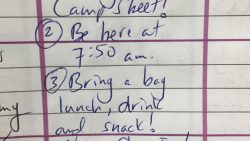 Camp sheet!
② Be here at
7:50 am.
③ Bring a bag
my lunch, drink
and snack!